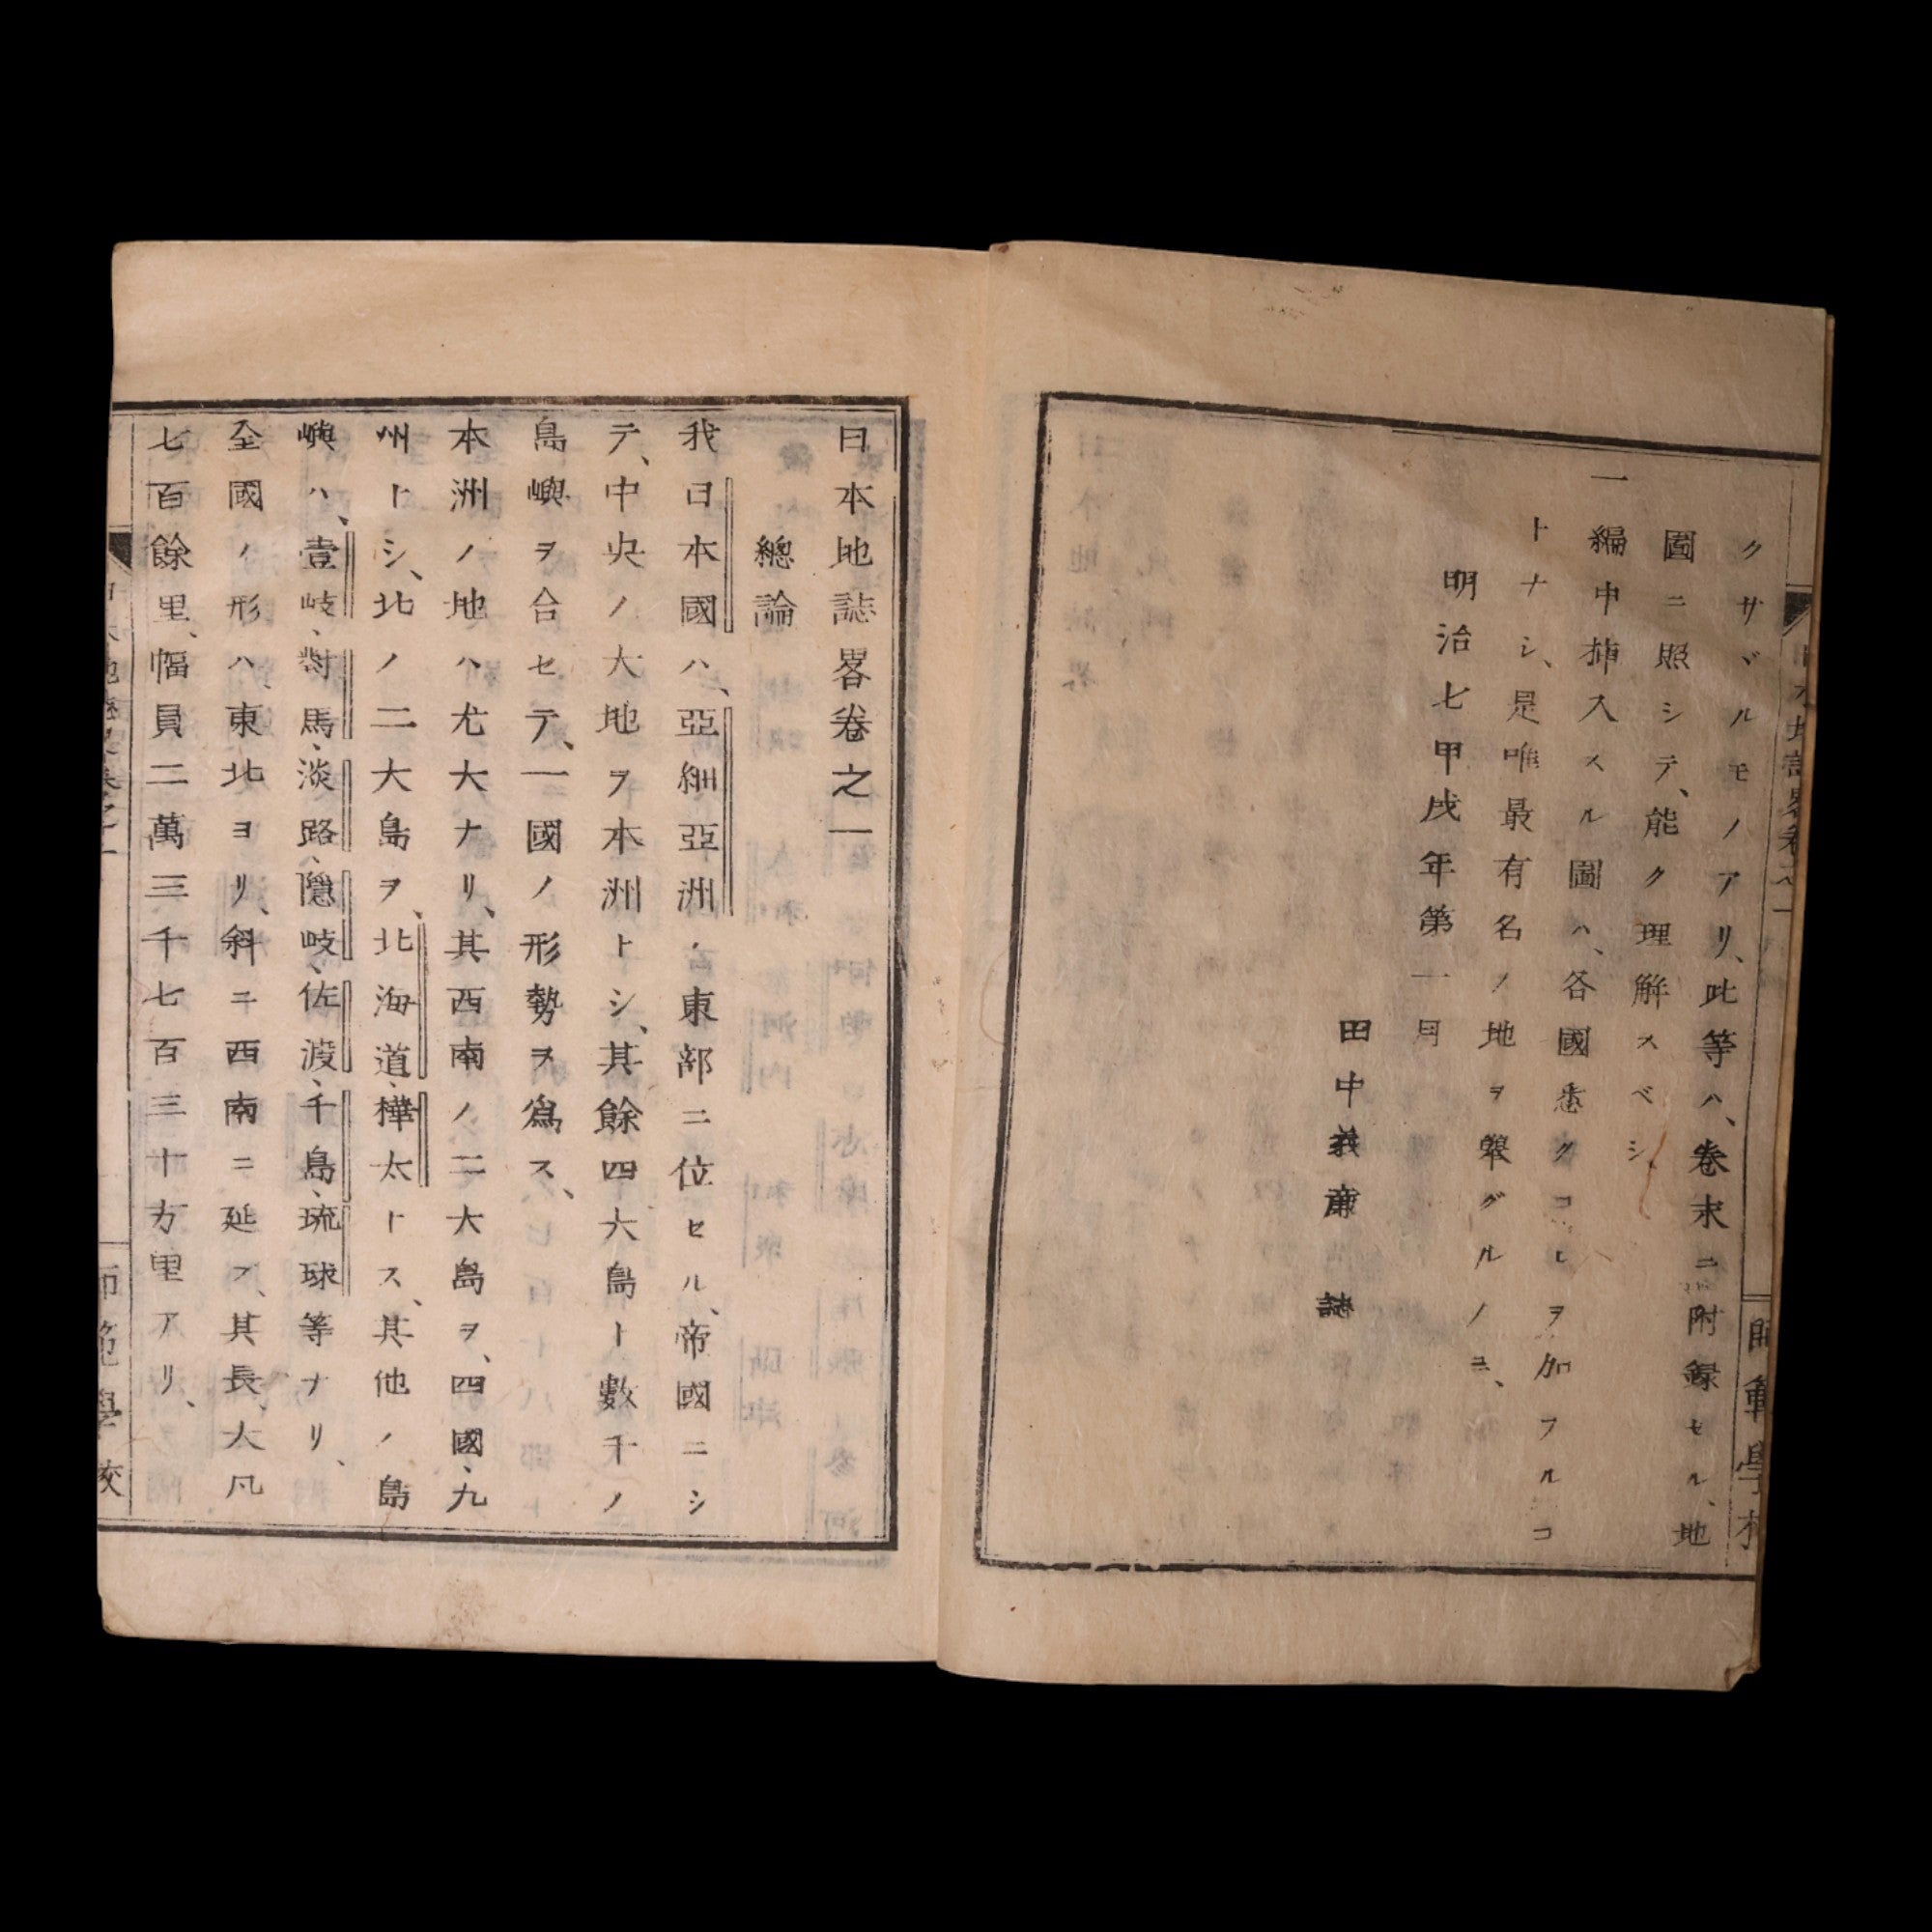 クサヾルモノアリ、此等ハ、卷末ニ附録セル、地
圖ニ照シテ、能ク理解スベシ、
一編中挿入スル圖ハ、各國悉クコレヲ加フルコ
トナシ、是唯最有名ノ地ヲ擧グルノミ、
明治七甲戌年第一月
田中義廉誌
日本地誌畧卷之一
總論
我日本國ハ、亞細亞洲ノ東部ニ位セル、帝國ニシ
テ、中央ノ大地ヲ本洲トシ、其餘四大島ト數千ノ
島嶼ヲ合セテ、一國ノ形勢ヲ爲ス、
本洲ノ地ハ尤大ナリ、其西南ノ二大島ヲ、四國、九
州トシ、北ノ二大島ヲ、北海道、樺太トス、其他ノ島
嶼ハ、壹岐、對馬、淡路、隱岐、佐渡、千島、琉球等ナリ、
全國ノ形ハ、東北ヨリ、斜ニ西南ニ延ブ、其長、大凡
七百餘里、幅員二萬三千七百三十方里アリ、
師範學校